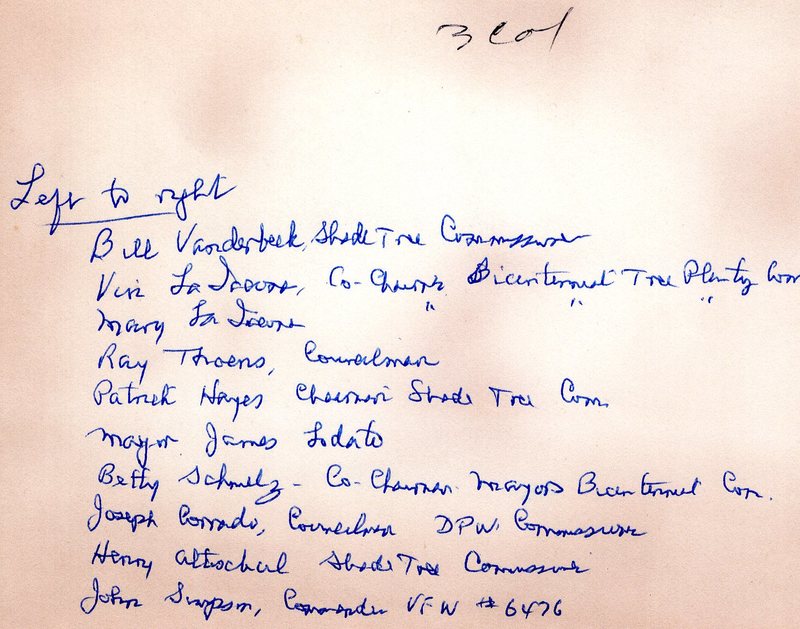 3 col
Left to right
Bill Vanderbeek, Shade Tree Commissioner
Vin La Iacona, Co-Chairm. Bicentennial Tree Planty Com
Mary La Iacona " " "
Ray Thoens, Councilman
Patrick Hayes Chairman Shade Tree Com.
Mayor James Lodato
Betty Schmelz - Co-Chairman Mayors Bicentennial Com.
Joseph Corrado, Councilman DPW Commissioner
Henry Altschul Shade Tree Commissioner
John Simpson, Commander VFW #6476